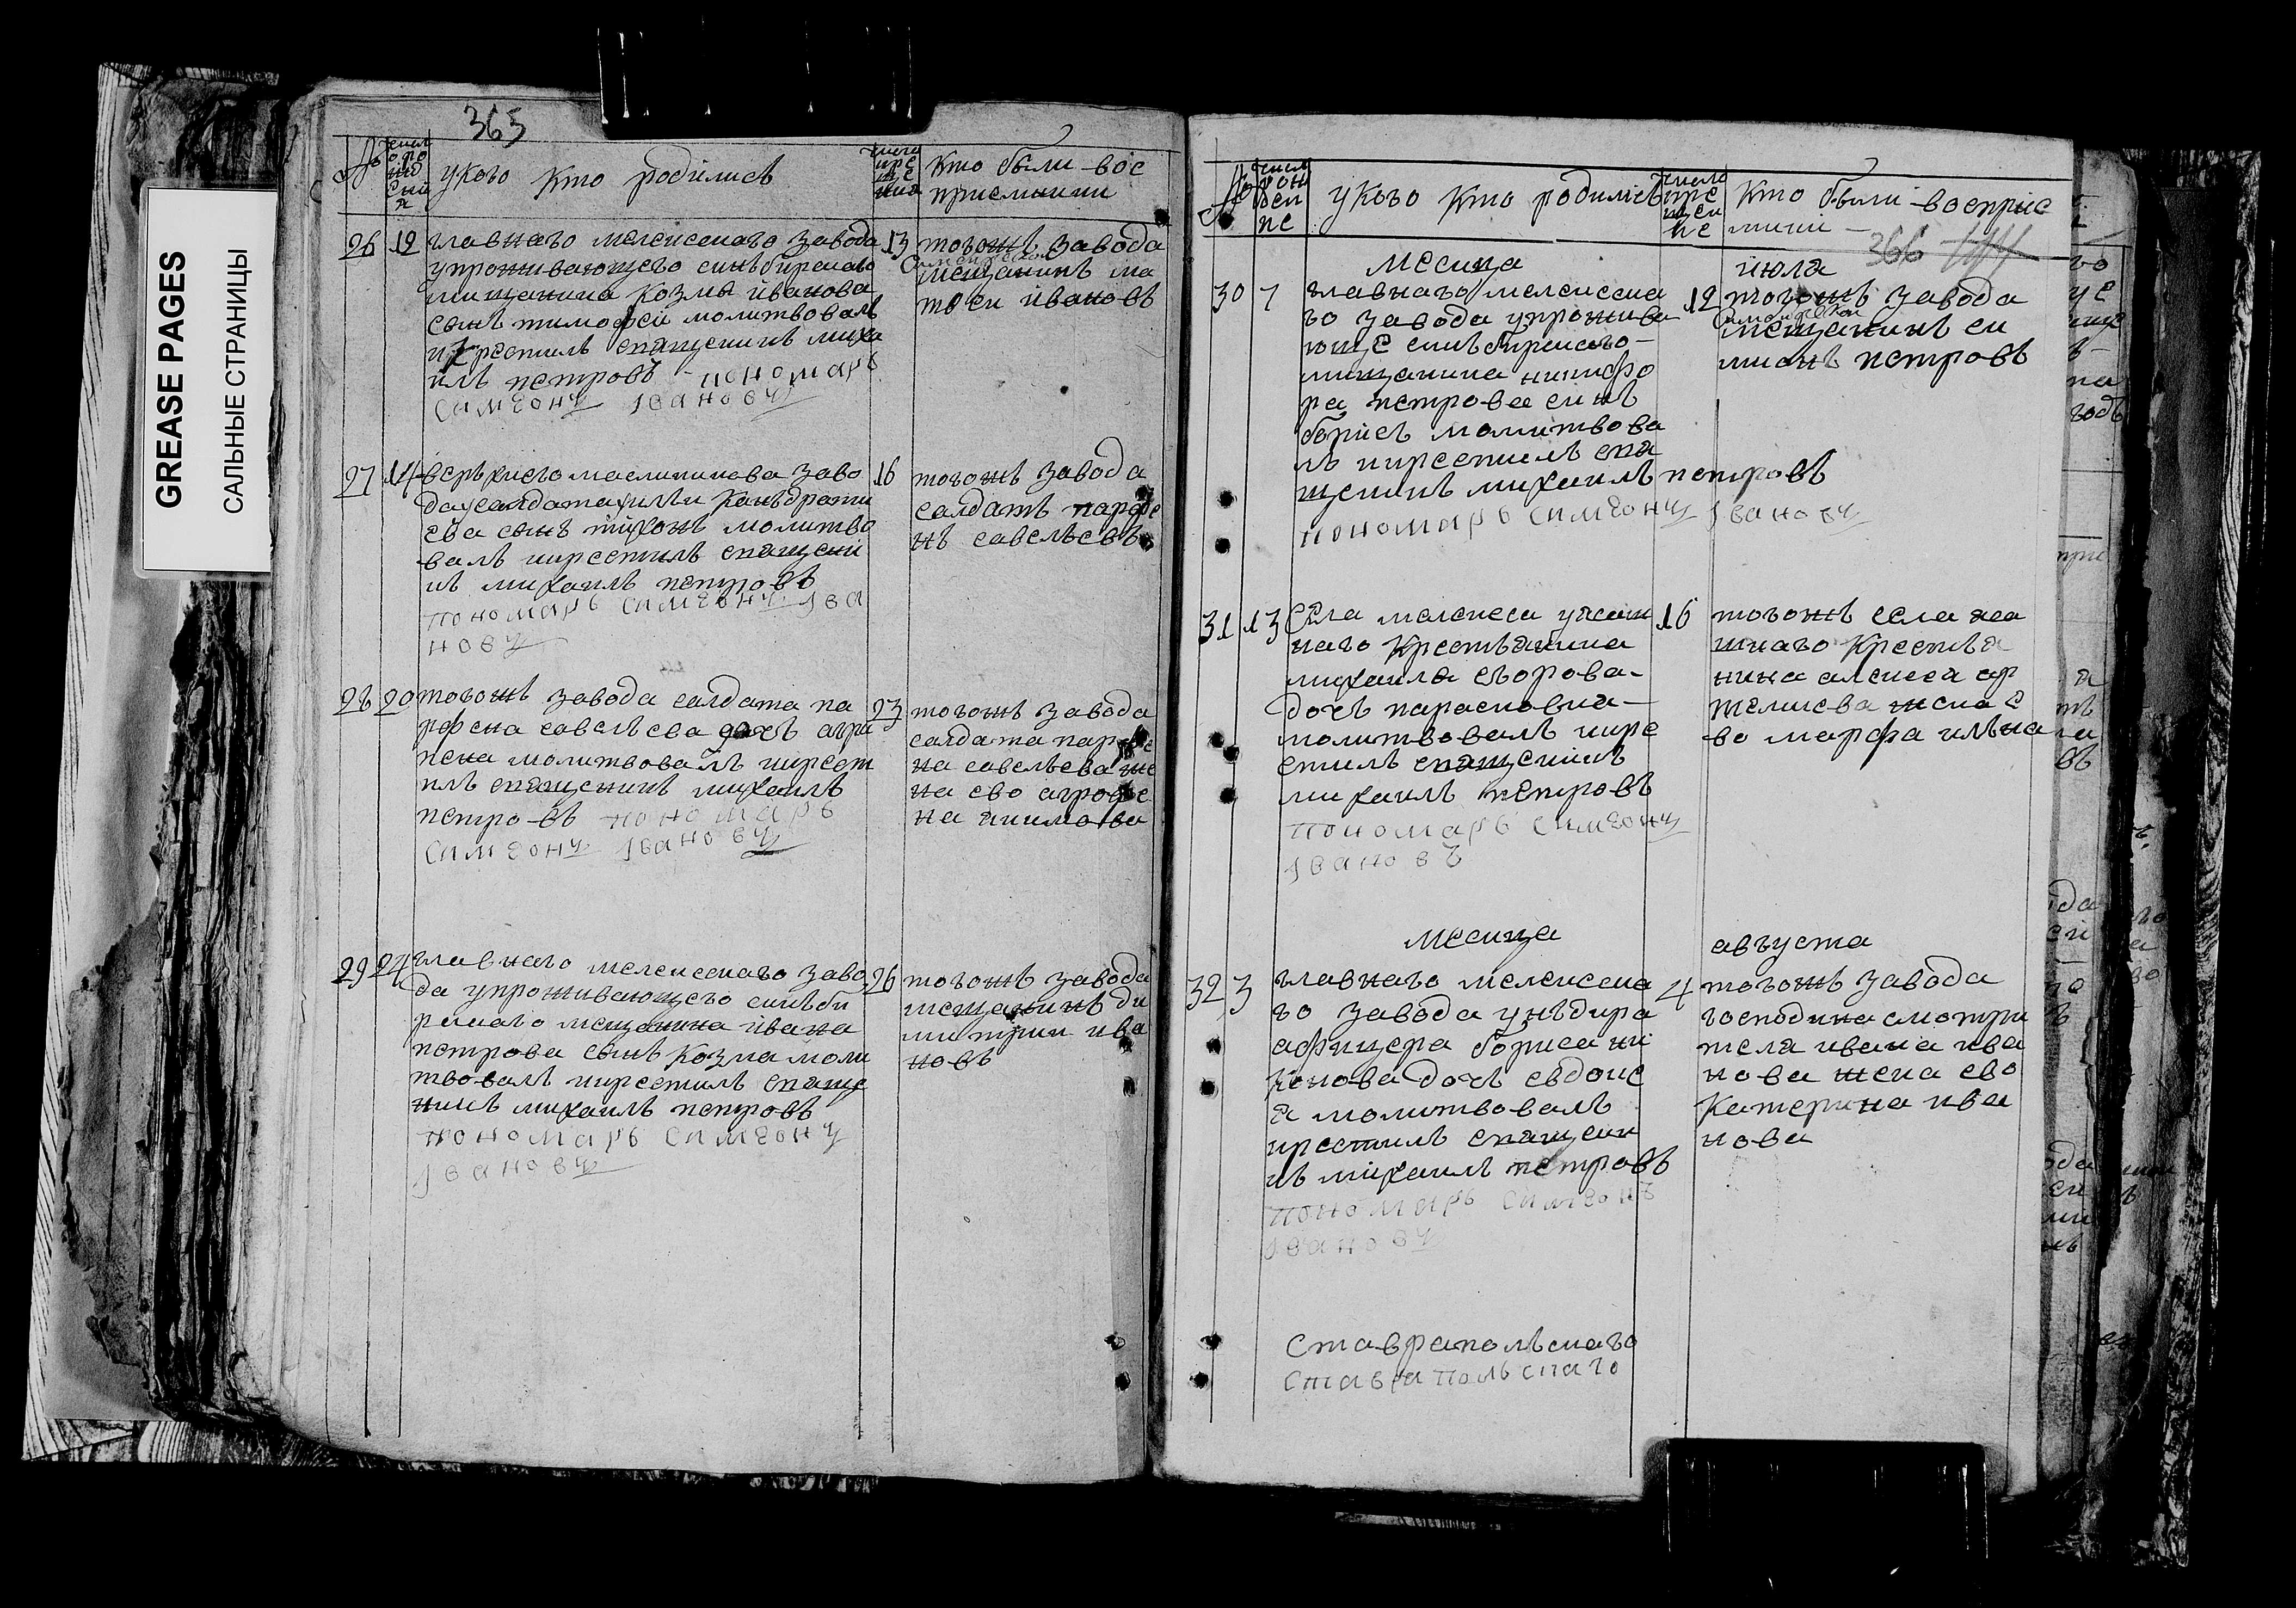 GREASE PAGES
САЛЬНЫЕ СТРАНИЦЫ
365
№
число рождения
укого кто родились
число крещения
кто были вос
приемники
26 12 главнаго мелекескаго завода
упроживающего синъбирскаго
мищанина козмы иванова
сынъ тимофей молитвовалъ
икрестилъ священникъ миха
илъ петровъ пономарь
Симеонъ Ивановъ
13 тогожъ завода
Симбирской
мещанинъ ма
тфеи ивановъ
27 14 верхнего завo
да усалдата или кандрати
ева сынъ тихонъ молитво
валъ икрестилъ священи
къ михаилъ петровъ
пономарь Симеонъ Ива
новъ
16 тогожъ завода
салдатъ парфе
нъ савельевъ
28 20 тогожъ завода салдата па
рфена савельева дочь агра
пена молитвовалъ икрест
илъ священикъ михаилъ
петровъ пономарь
Симеонъ Ивановъ
23 тогожъ завода
салдата парфе
на савельева же
на ево агрофе
на
29 24 главнаго мелекескаго заво
да упроживающего синъби
рскаго мещанина ивана
петрова сынъ козма моли
твовалъ икрестилъ свяще
никъ михаилъ петровъ
пономарь Симеонъ
Ивановъ
26 тогожъ завода
мещанинъ ди
митрии ива
новъ
№
число рождение
укого кто родились
число крещение
кто были восприе
мники
366
месяца июля
30 7 главнаго мелекеска
го завода упрожива
юще синъбирскаго
мищанина никифо
ра петрова сынъ
борисъ молитвова
лъ икрестилъ свя
щеникъ михаилъ петровъ
пономарь Симеонъ Ивановъ
12 тогожъ завода
Симбирской
мещанинъ си
мионъ петровъ
31 13 Села мелекеса
наго крестьянина
михаила егорова
дочь парасковиа
молитвовалъ икре
стилъ священикъ
михаилъ петровъ
пономарь Симеонъ
Ивановъ
16 тогожъ села
крестья
нина алексея ар
темиева жена е
во марфа ильина
месяца августа
32 3 главнаго мелекеска
го завода унъдира
афицера бориса ни
конова дочь евдоке
а молитвовалъ
икрестилъ священи
къ михаилъ петровъ
пономарь Симеонъ
Ивановъ
4 тогожъ завода
господина смотри
теля ивана ива
нова жена ево
катерина ива
нова
Ставрапольскаго
Ставрапольскаго